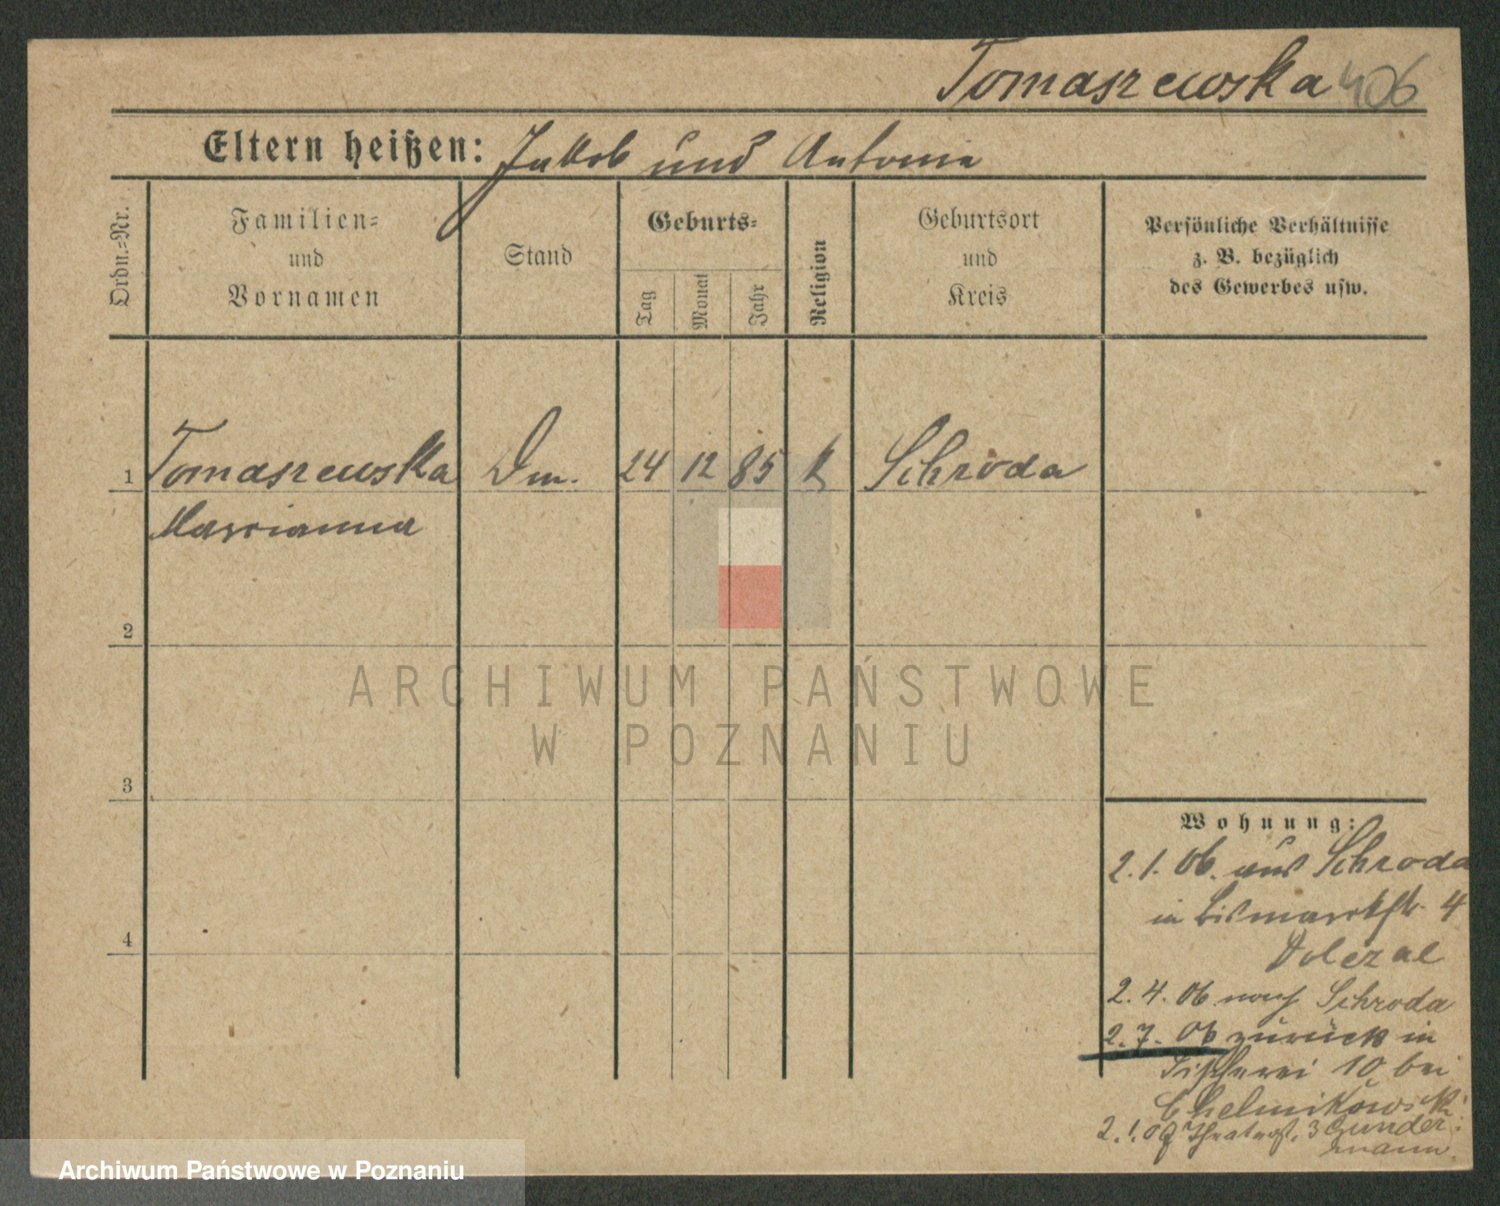 Tomaszewska 406
Eltern heißen: Jakob und Antonie
Ordn.=Nr.
Familien=
und
Vornamen
Stand
Geburts=
Tag
Monat
Jahr
Religion
Geburtsort
und
Kreis
Persönliche Verhältnisse
z. B. bezüglich
des Gewerbes usw.
1 Tomaszewska Dm. 24 12 85 k Schroda
Marianna
2
3
4
Wohnung:
2.1.06. aus Schroda
in Bismarckstr. 4
Dolezal
2.4.06 nach Schroda
2.7.06 zurück in
Fischerei 10 bei
Chelmikowski
2.1.07 3 Gunder
mann.
ARCHIWUM PAŃSTWOWE
W POZNANIU
Archiwum Państwowe w Poznaniu